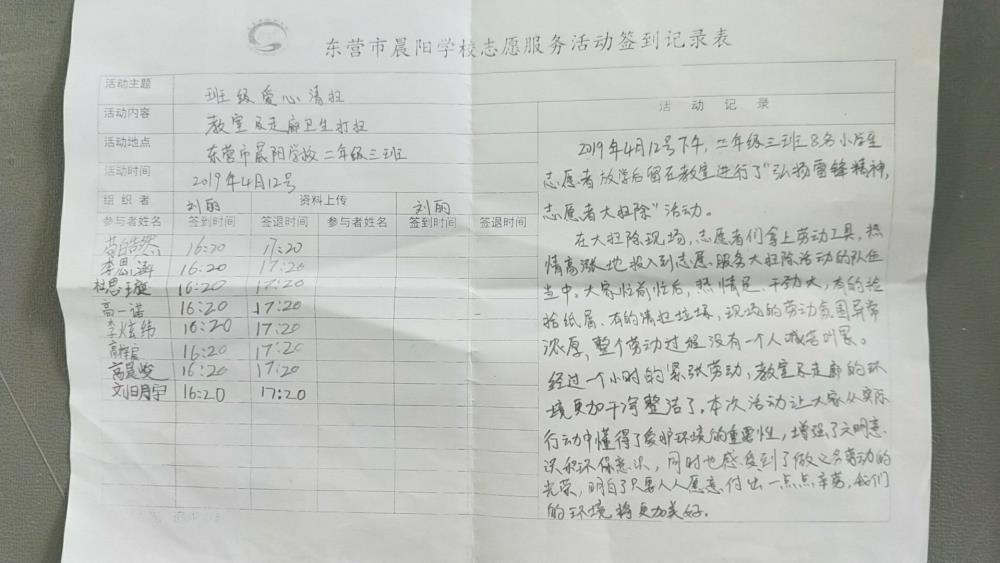 东营市晨阳学校志愿服务活动签到记录表
活动主题 班级爱心清扫
活动内容 教室及走廊卫生打扫
活动地点 东营市晨阳学校二年级三班
活动时间 2019年4月12号
组织者 刘丽 资料上传 刘丽
参与者姓名 签到时间 签退时间 参与者姓名 签到时间 签退时间
16:20 17:20
李思涵 16:20 17:20
杜思璇 16:20 17:20
高一诺 16:20 17:20
李炫纬 16:20 17:20
16:20 17:20
高晨峻 16:20 17:20
刘玥宇 16:20 17:20
活动记录
2019年4月12号下午,二年级三班8名小学生
志愿者放学后留在教室进行了“弘扬雷锋精神,
志愿者大扫除”活动。
在大扫除现场,志愿者们拿上劳动工具,热
情高涨地投入到志愿服务大扫除活动的队伍
当中。大家忙前忙后,热情足、干劲大,有的捡
拾纸屑、有的清扫垃圾,现场的劳动氛围异常
浓厚,整个劳动过程没有一个人喊苦叫累。
经过一个小时的紧张劳动,教室及走廊的环
境更加干净整洁了。本次活动让大家从实际
行动中懂得了爱护环境的重要性,增强了文明意
识和环保意识,同时也感受到了做义务劳动的
光荣,明白了只要人人愿意付出一点点辛劳,我们
的环境将更加美好。